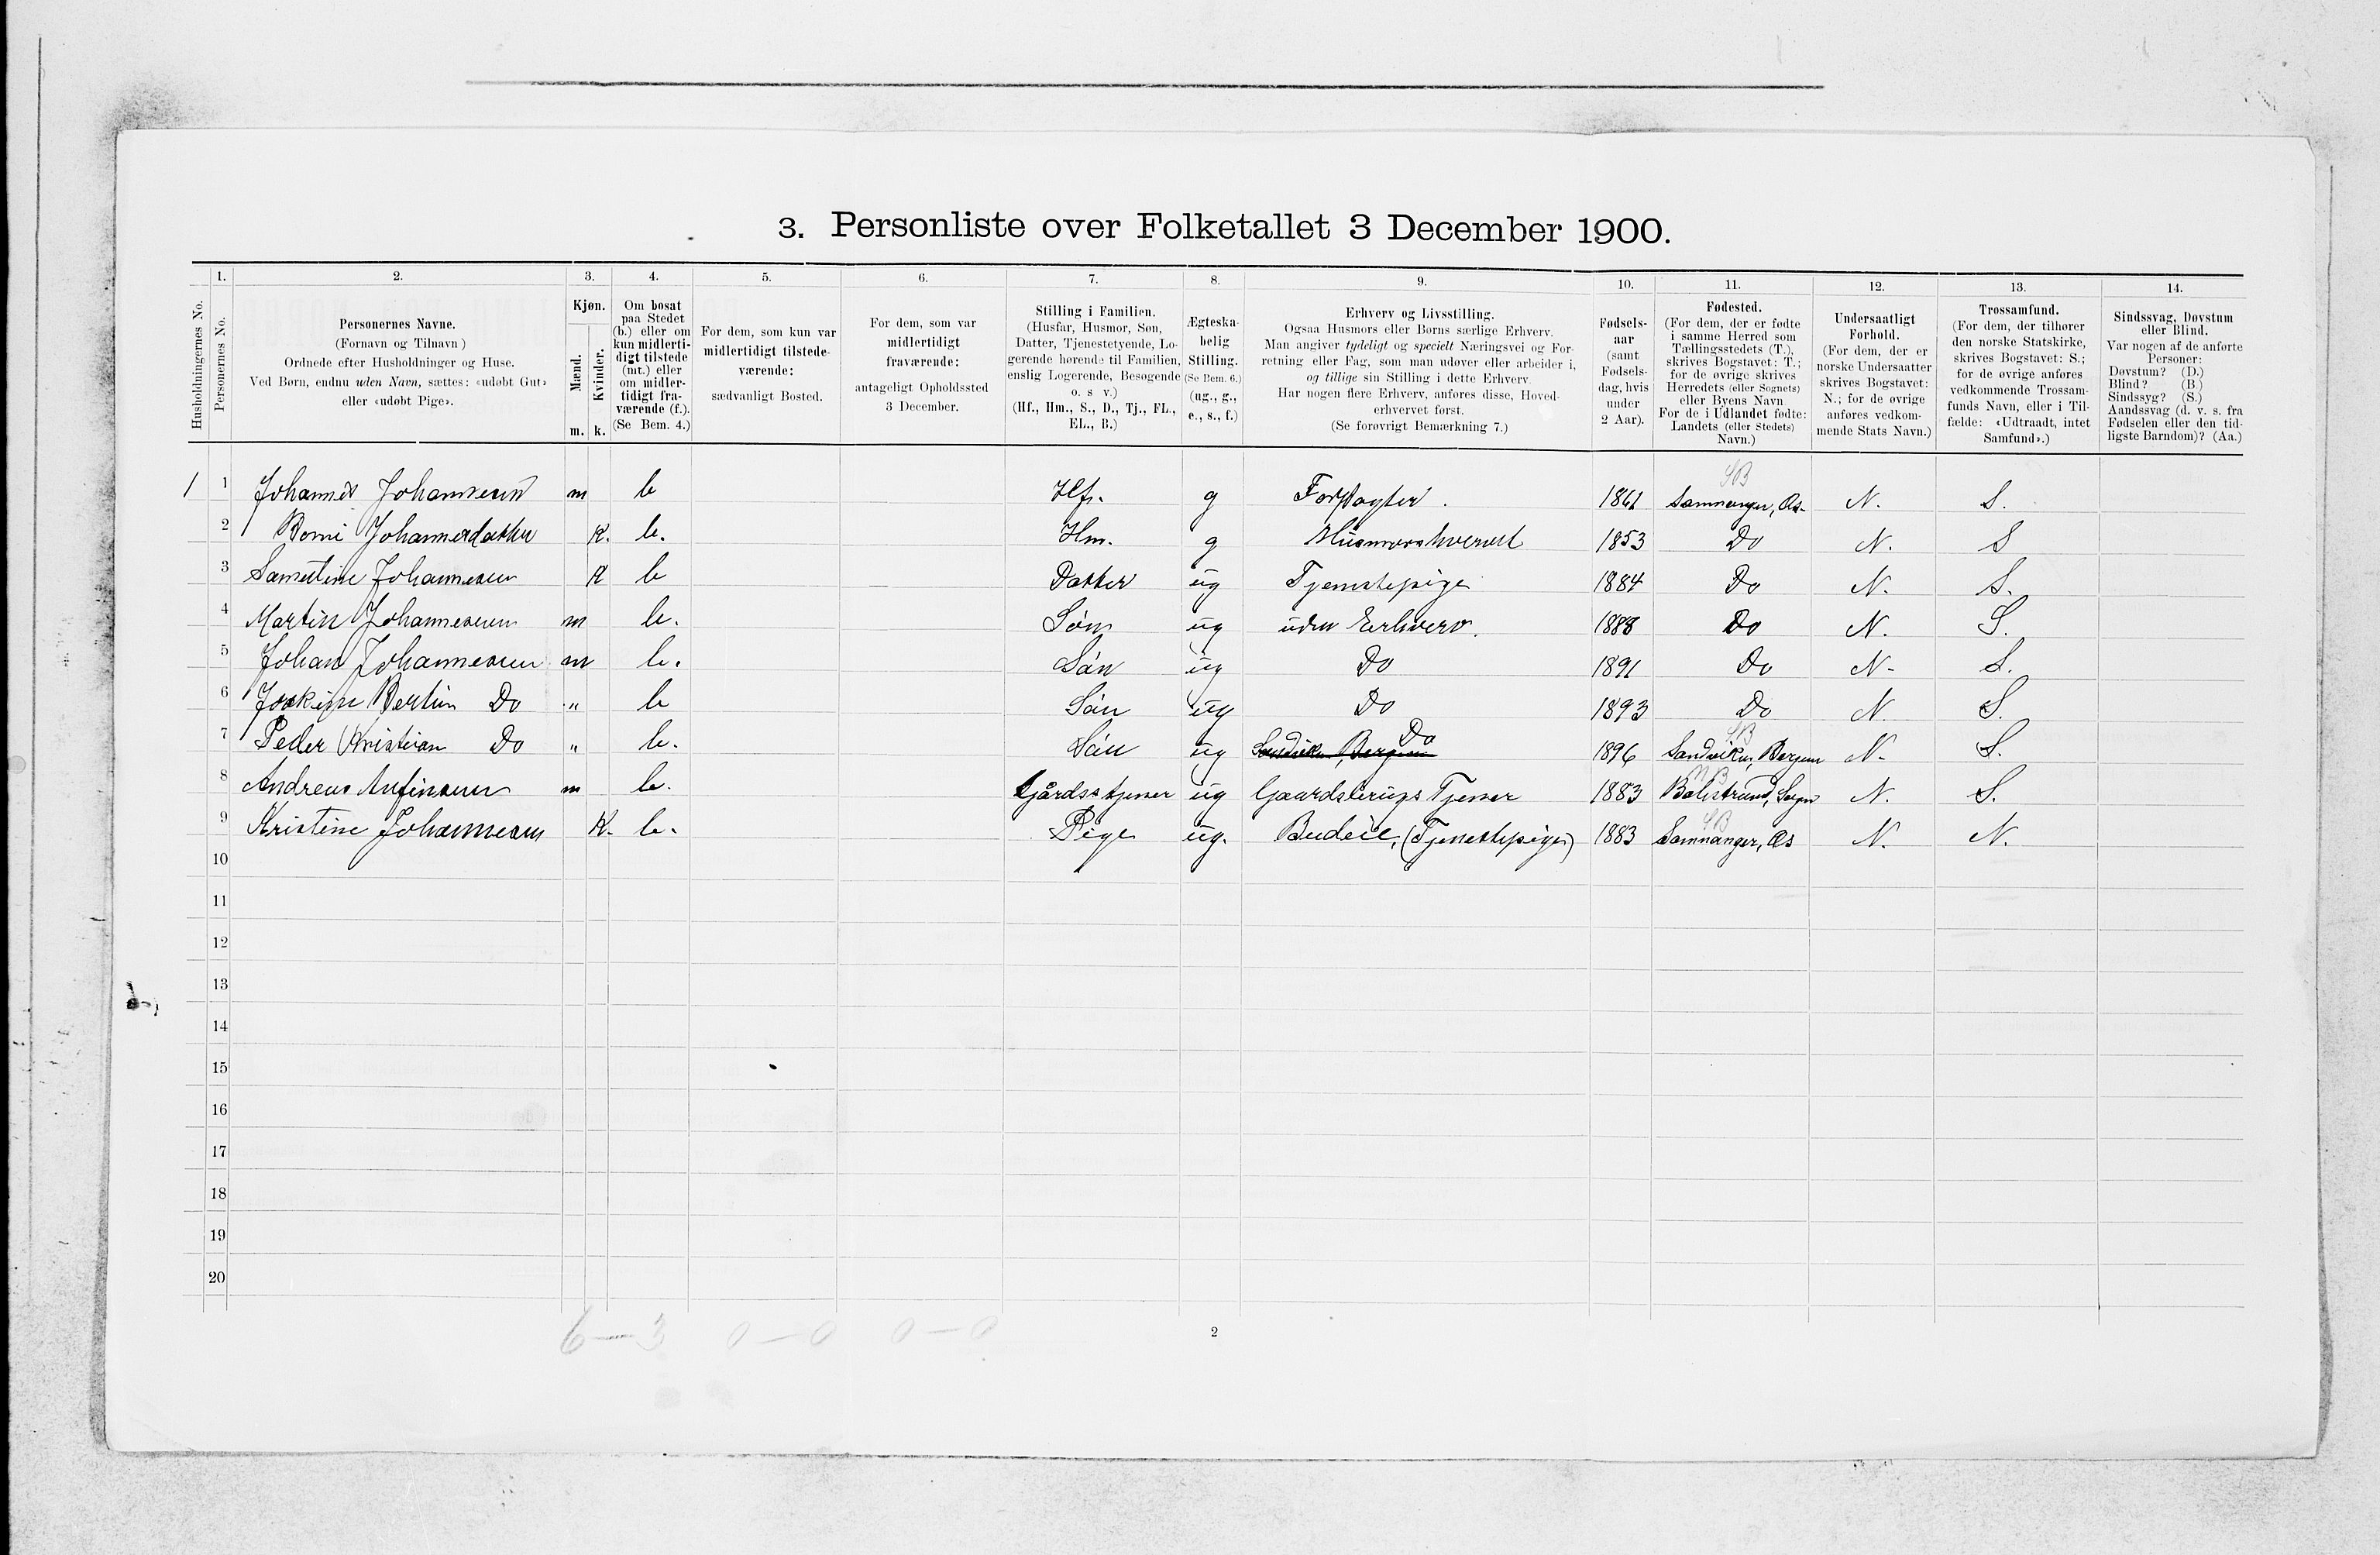 3. Personliste over Folketallet 3 December 1900.
Husholdningernes No.
1.
Personernes No.
2.
Personernes Navne.
(Fornavn og Tilnavn)
Ordnede efter Husholdninger og Huse.
Ved Børn, endnu uden Navn, sættes: «udøbt Gut»
eller «udøbt Pige».
3.
Kjøn.
Mænd.
Kvinder.
m. k.
4.
Om bosat
paa Stedet
(b.) eller om
kun midlerti-
digt tilstede
(mt.) eller
om midler-
tidigt fra-
værende (f.).
(Se Bem. 4.)
5.
For dem, som kun var
midlertidigt tilstede-
værende:
sædvanligt Bosted.
6.
For dem, som var
midlertidigt
fraværende:
antageligt Opholdssted
3 December.
7.
Stilling i Familien.
(Husfar, Husmor, Søn,
Datter, Tjenestetyende, Lo-
gerende hørende til Familien,
enslig Logerende, Besøgende
o. s v.)
(Hf., Hm., S., D., Tj., FL.,
EL., B.)
8.
Ægteska-
belig
Stilling.
(Se Bem. 6.)
(ug., g.,
e., s., f.)
9.
Erhverv og Livsstilling.
Ogsaa Husmors eller Børns særlige Erhverv.
Man angiver tydeligt og specielt Næringsvei og For-
retning eller Fag, som man udøver eller arbeider i,
og tillige sin Stilling i dette Erhverv.
Har nogen flere Erhverv, anføres disse, Hoved-
erhvervet først.
(Se forøvrigt Bemærkning 7.)
10.
Fødsels-
aar
(samt
Fødsels-
dag, hvis
under
2 Aar).
11.
Fødested.
(For dem, der er fødte
i samme Herred som
Tællingsstedets (T.),
skrives Bogstavet: T.;
for de øvrige skrives
Herredets (eller Sognets)
eller Byens Navn
For de i Udlandet fødte:
Landets (eller Stedets)
Navn.)
12.
Undersaatligt
Forhold.
(For dem, der er
norske Undersaatter
skrives Bogstavet:
N.; for de øvrige
anføres vedkom-
mende Stats Navn.)
13.
Trossamfund.
(For dem, der tilhører
den norske Statskirke,
skrives Bogstavet: S.;
for de øvrige anføres
vedkommende Trossam-
funds Navn, eller i Til-
fælde: «Udtraadt, intet
Samfund».)
14.
Sindssvag, Døvstum
eller Blind.
Var nogen af de anførte
Personer:
Døvstum? (D.)
Blind? (B.)
Sindssyg? (S.)
Aandssvag (d. v. s. fra
Fødselen eller den tid-
ligste Barndom)? (Aa.)
SB
1 1 Johannes Johannesen m b Hf. g Forpagter. 1861 Samnanger, Os. N. S.
2 Johannesdatter K. b. Hm. g 1853 Do N. S
3 Johannesen K b Datter ug Tjenestepige 1884 Do N. S.
4 Martin Johannesen m b. Søn ug uden Erhverv. 1888 Do N. S.
5 Johan Johannesen m b. Søn ug Do 1891 Do N. S.
6 Joakim Bertin Do " b Søn ug Do 1893 Do N. S.
SB
7 Peder Kristian Do " b. Søn ug Sandviken, Bergen Do 1896 Sandviken, Bergen N. S.
8 Andreas Anfinsen m b. Gårdsstjener ug Gaardsbrugs Tjener 1883 Balestrand, Sogn N. S.
SB
9 Kristine Johannesen K. b. Pige ug. Budeie, (Tjenestepige) 1883 Samnanger, Os N. N.
10
11
12
13
14
15
16
17
18
19
20
6 — 3 0 — 0 0 — 0
2